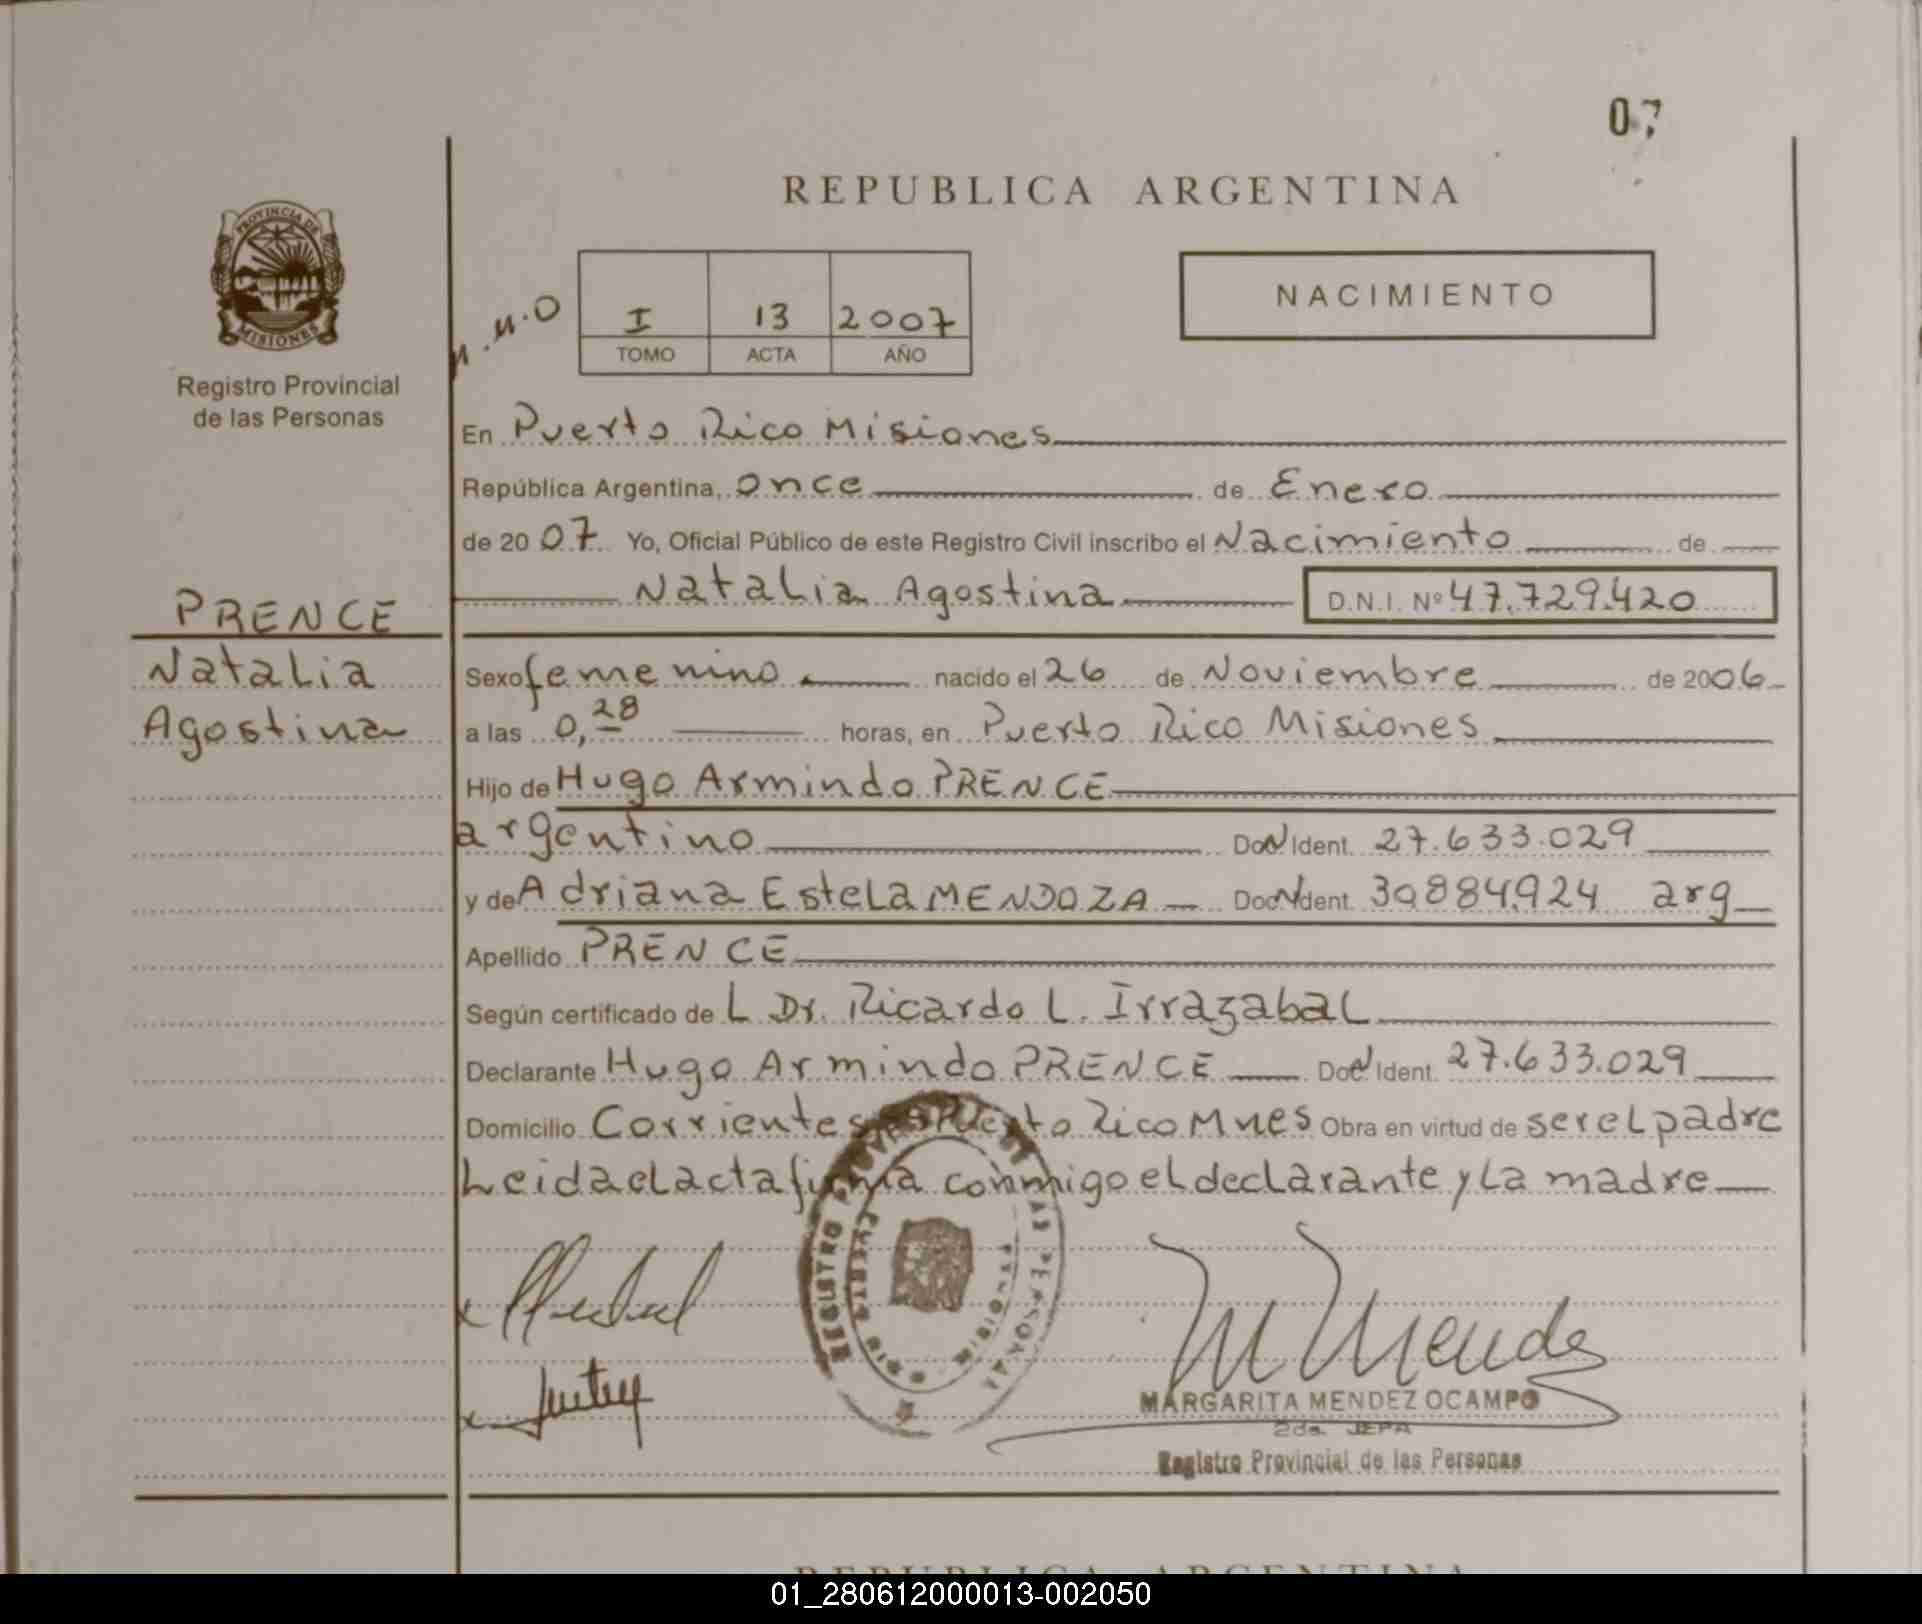 07
REPUBLICA ARGENTINA
PROVINCIA DE
MISIONES
Registro Provincial
de las Personas
I 13 2007
TOMO ACTA AÑO
NACIMIENTO
En Puerto Rico Misiones
República Argentina, once de Enero
de 2007 Yo, Oficial Público de este Registro Civil inscribo el Nacimiento de
Natalia Agostina D.N.I. Nº 47.729.420
PRENCE
Natalia
Agostina
Sexo femenino nacido el 26 de Noviembre de 2006
a las 0,28 horas, en Puerto Rico Misiones
Hijo de Hugo Armindo PRENCE
argentino Ident. 27.633.029
y de Adriana Estela MENDOZA 30.884.924 arg
Apellido PRENCE
Según certificado de L Dr. Ricardo L. Irrazabal
Declarante Hugo Armindo PRENCE Ident. 27.633.029
Domicilio Corrientes Puerto Rico Mnes Obra en virtud de ser el padre
Leida el acta firma conmigo el declarante y la madre
REGISTRO DE LAS PERSONAS
MARGARITA MENDEZ OCAMPO
2da. JEFA
Registro Provincial de las Personas
REPUBLICA ARGENTINA
01_280612000013-002050